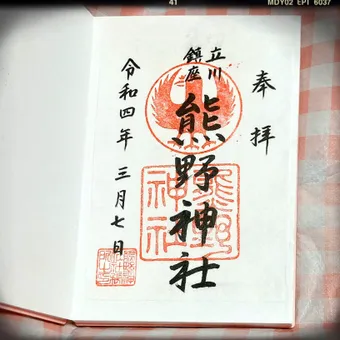 41 MDY02 EPT 6037
奉拝
立川
鎮座
熊野神社
熊野
神社
令和四年 三月七日